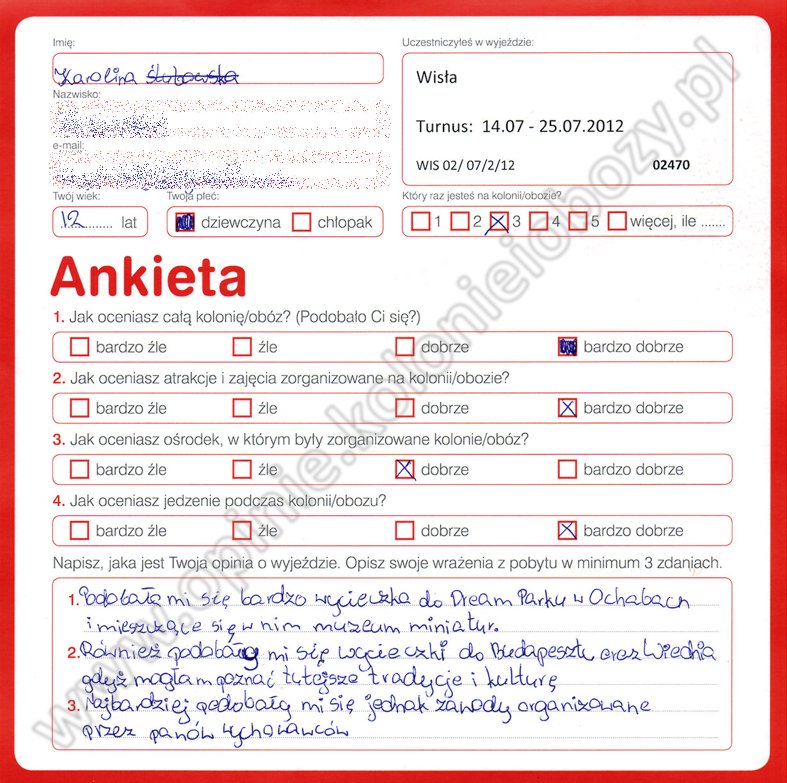 Imię:
Karolina
Nazwisko:
e-mail:
Twój wiek:
12 ........ lat
Twoja płeć:
dziewczyna chłopak
Uczestniczyłeś w wyjeździe:
Wisła
Turnus: 14.07 - 25.07.2012
WIS 02/ 07/2/12 02470
Który raz jesteś na kolonii/obozie?
1 2 3 4 5 więcej, ile .......
Ankieta
1. Jak oceniasz całą kolonię/obóz? (Podobało Ci się?)
bardzo źle źle dobrze bardzo dobrze
2. Jak oceniasz atrakcje i zajęcia zorganizowane na kolonii/obozie?
bardzo źle źle dobrze bardzo dobrze
3. Jak oceniasz ośrodek, w którym były zorganizowane kolonie/obóz?
bardzo źle źle dobrze bardzo dobrze
4. Jak oceniasz jedzenie podczas kolonii/obozu?
bardzo źle źle dobrze bardzo dobrze
Napisz, jaka jest Twoja opinia o wyjeździe. Opisz swoje wrażenia z pobytu w minimum 3 zdaniach.
1. Podobała mi się bardzo wycieczka do Dream Parku w Ochabach
i mieszczące się w nim muzeum miniatur.
2. Również podobały mi się wycieczki do Budapesztu oraz Wiednia
gdyż mogłam poznać tutejsze tradycje i kulturę
3. Najbardziej podobały mi się jednak zawody organizowane
przez panów wychowawców
www.opinie.kolonieiobozy.pl